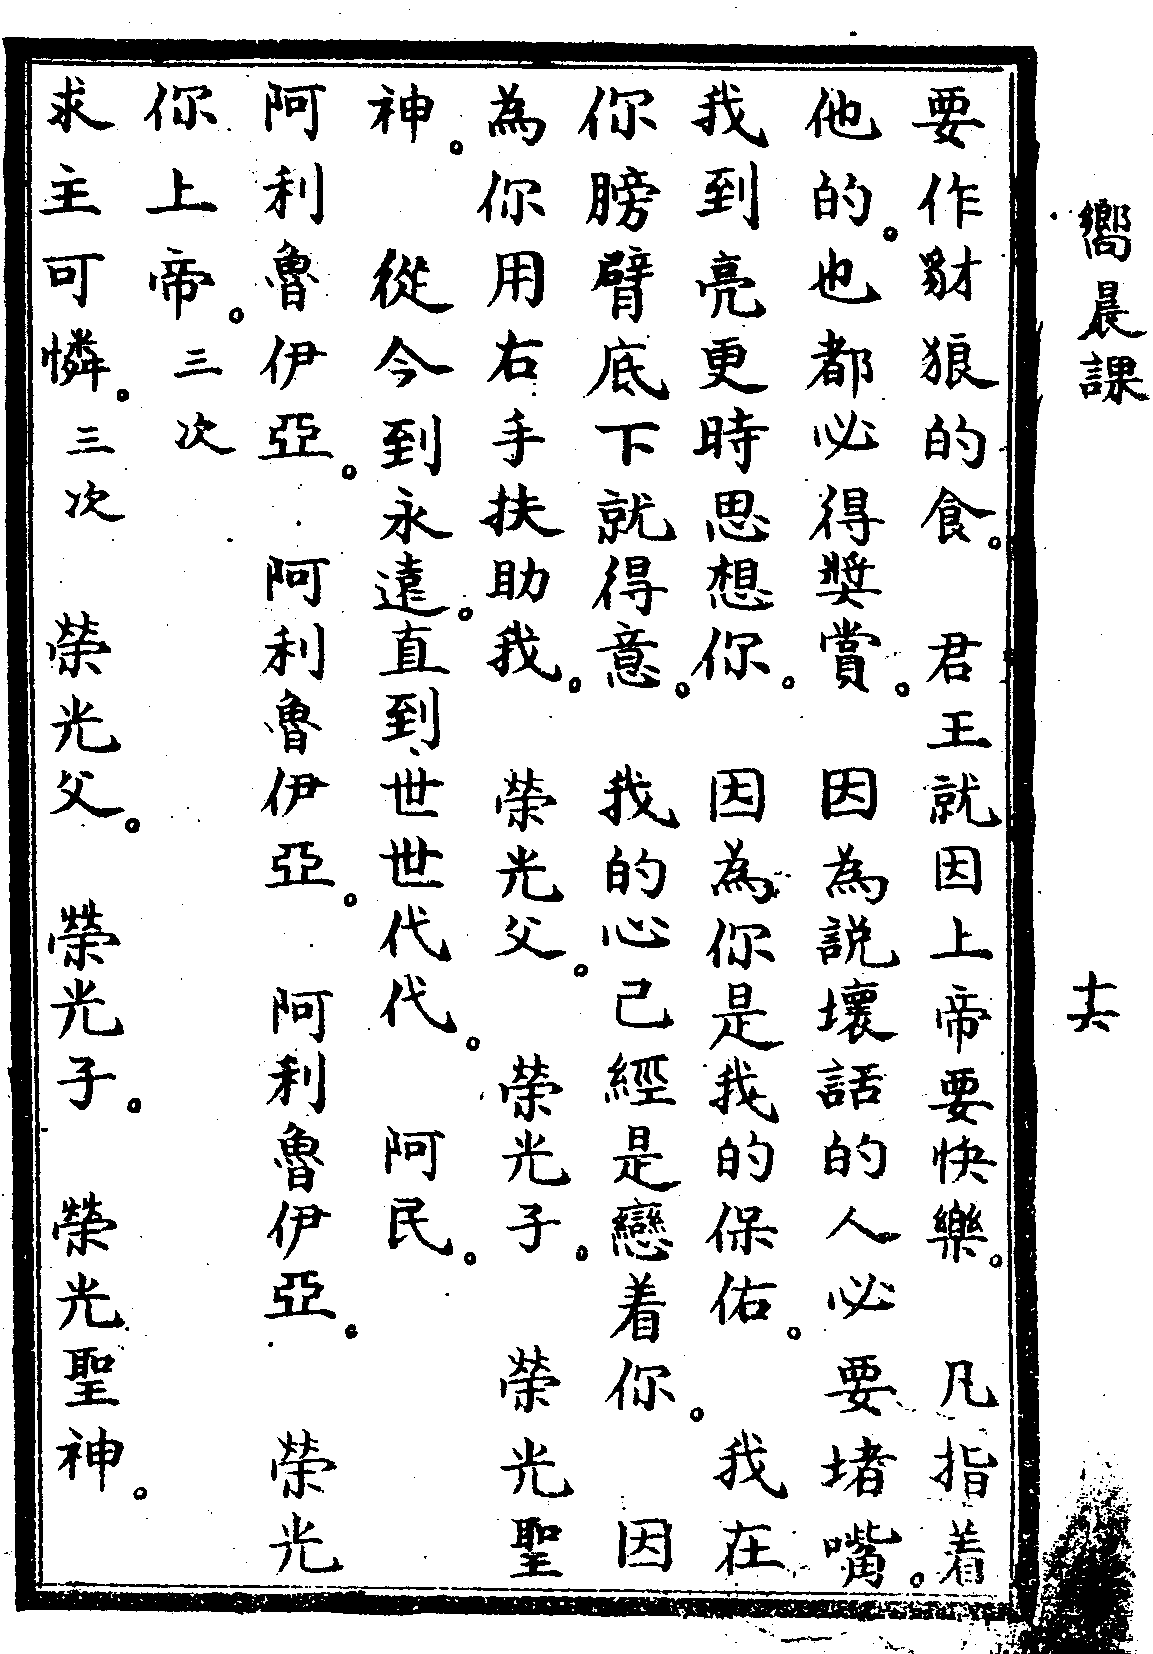 嚮晨課
十六
要作豺狼的食。君王就因上帝要快樂。凡指着
他的。也都必得獎賞。因為說壞話的人必要堵嘴。
我到亮更時思想你。因為你是我的保佑。我在
你膀臂底下就得意。我的心己經是戀着你。因
為你用右手扶助我。榮光父。榮光子。榮光聖
神。從今到永遠。直到世世代代。阿民。
阿利魯伊亞。阿利魯伊亞。阿利魯伊亞。榮光
你上帝。三次
求主可憐。三次 榮光父。榮光子。榮光聖神。